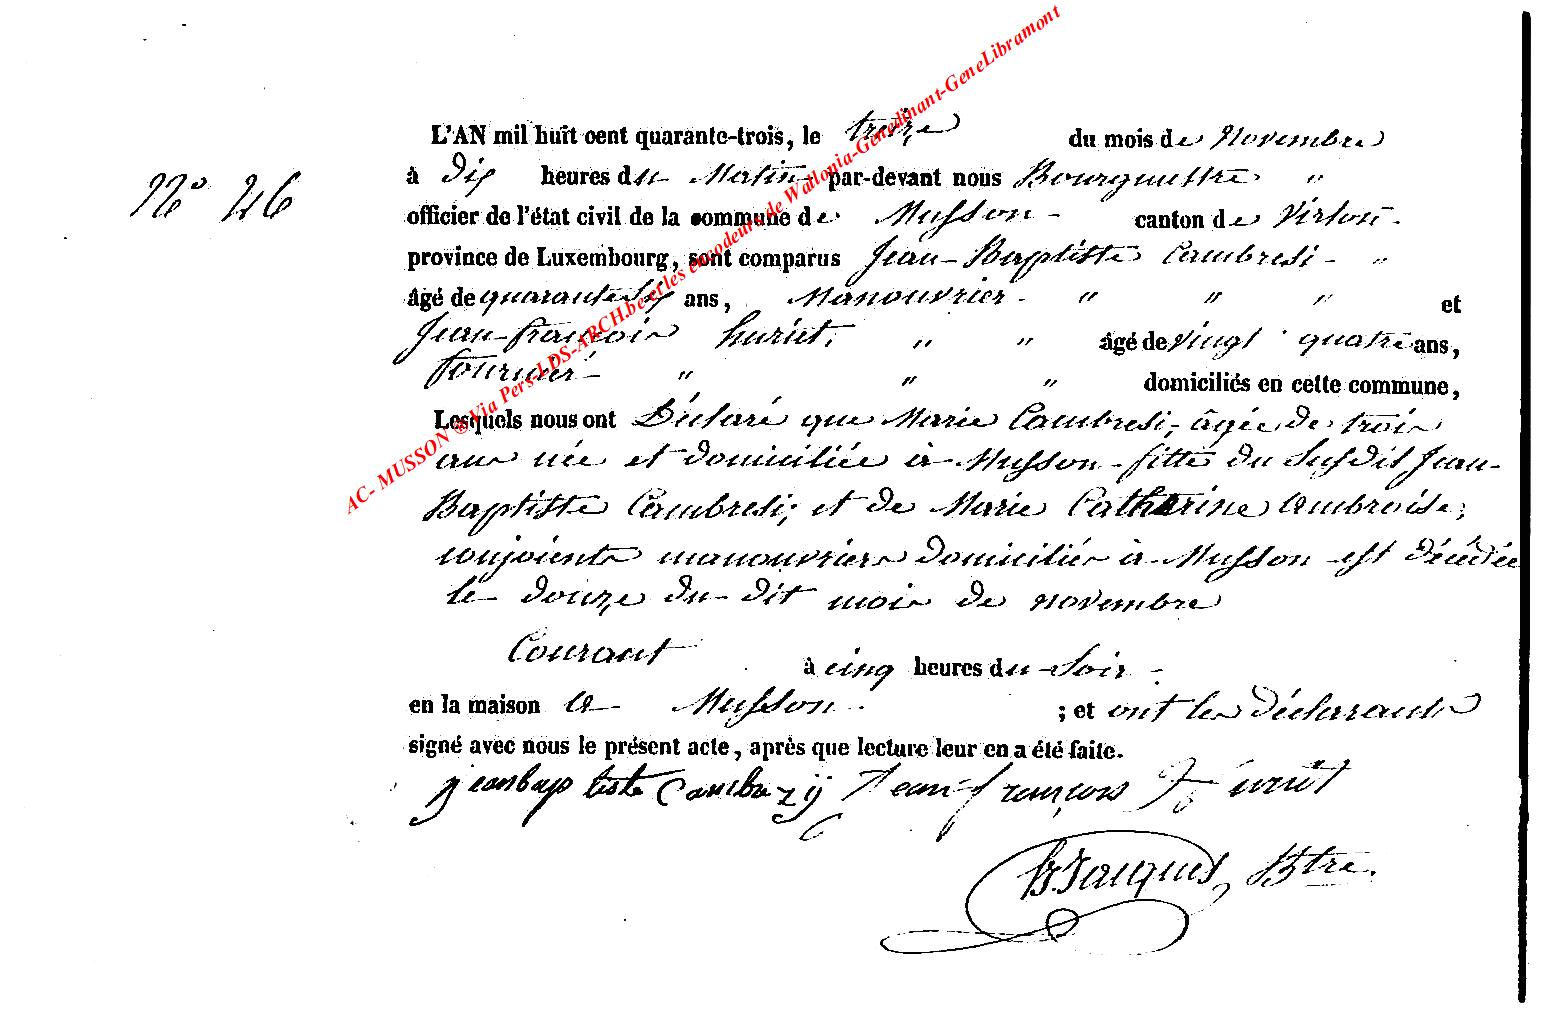 L'AN mil huit cent quarante-trois, le treize du mois de Novembre
N° 46
à Dix heures du Matin par-devant nous Bourguestre "
officier de l'état civil de la commune de Musson - canton de Virton -
province de Luxembourg, sont comparus Jean-Baptiste Cambresi - "
âgé de quarante six ans, Manouvrier - " " " et
Jean-françois huriet, " " âgé de vingt quatre ans,
" " " domiciliés en cette commune,
Lesquels nous ont Déclaré que Marie Cambresi, âgée de trois
ans née et domiciliée à Musson - fille du Susdit Jean-
Baptiste Cambresi; et de Marie Catherine Ambroise,
conjoints manouvriers domiciliés à Musson - est décédée
le - douze du - dit mois de novembre
Courant à cinq heures du - Soir -
en la maison à - Musson - ; et ont les déclarants
signé avec nous le présent acte, après que lecture leur en a été faite.
jeanbaptiste Cambrezÿ Jean-françois
Jacques, Btre.
AC- MUSSON ®Via Pers-LDS-ARCH.be et les encodeurs de Wallonia-Genedinant-GeneLibramont